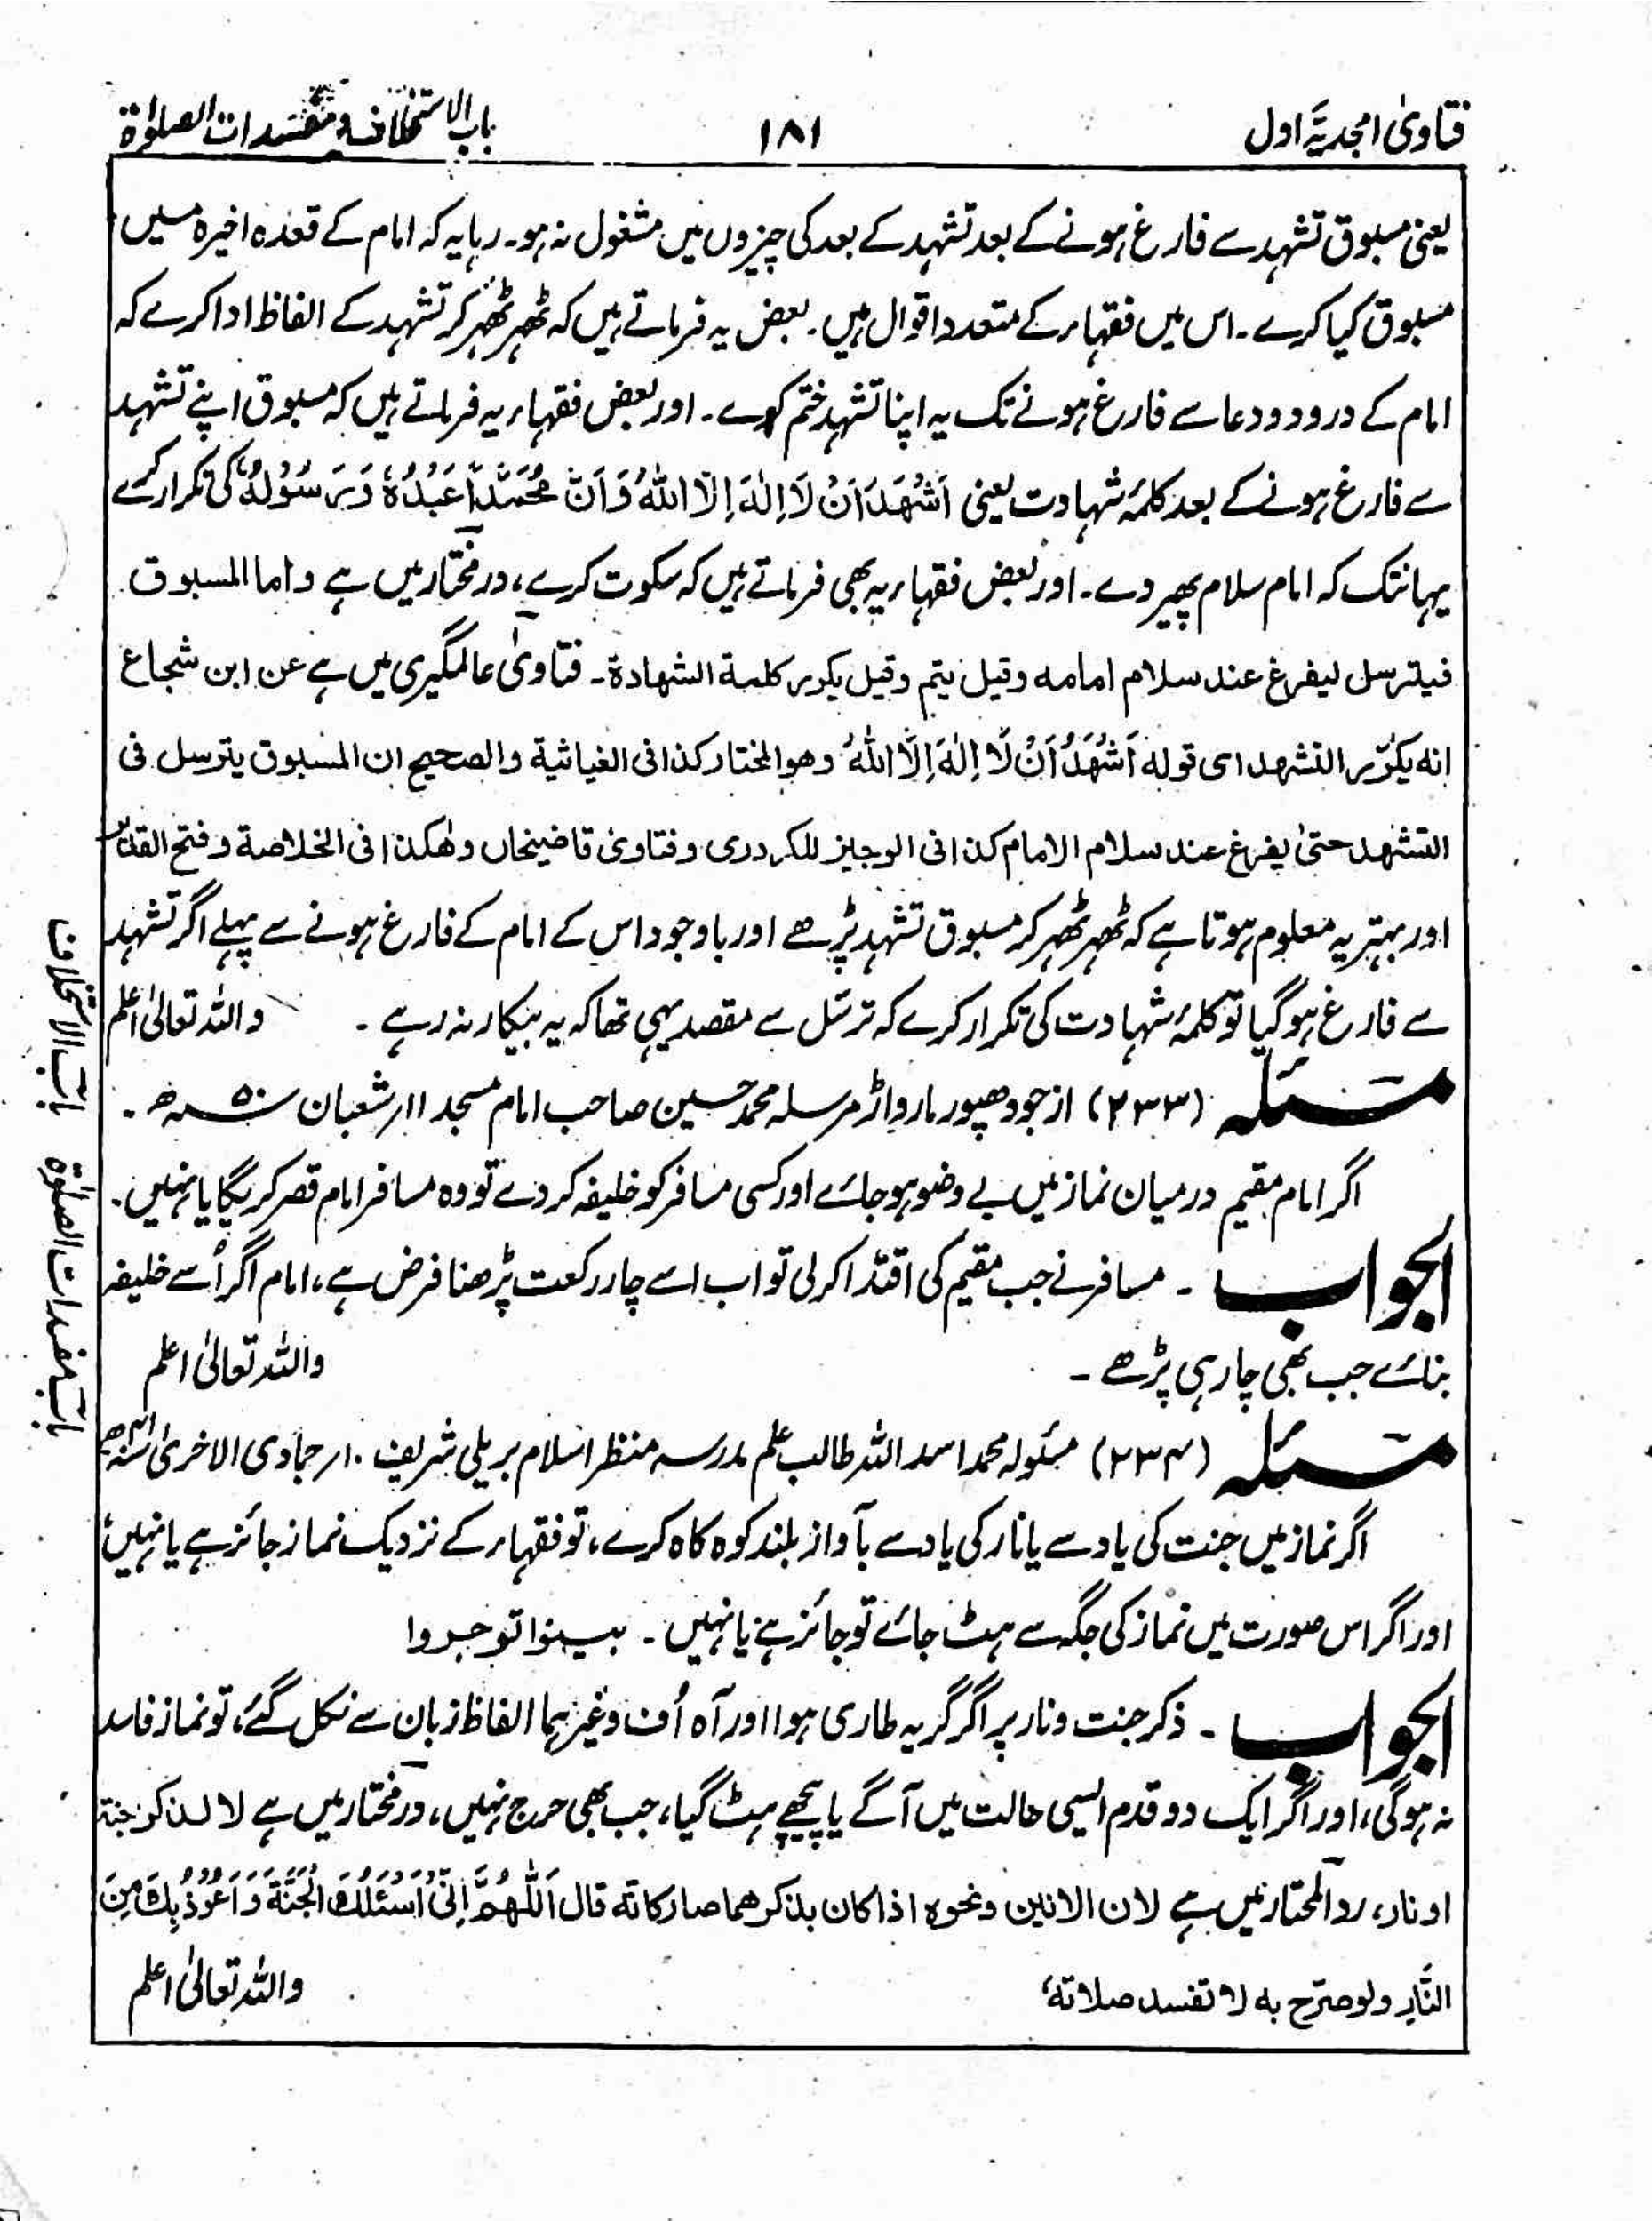 فتاویٰ امجدیہ اول
۱۸۱
باب الاستخلاف و مفسدات الصلوٰة
یعنی مسبوق تشہد سے فارغ ہونے کے بعد تشہد کے بعد کی چیزوں میں مشغول نہ ہو۔ رہا یہ کہ امام کے قعدہ اخیرہ میں
مسبوق کیا کرے۔ اس میں فقہاء کے متعدد اقوال ہیں۔ بعض یہ فرماتے ہیں کہ ٹھہر ٹھہر کر تشہد کے الفاظ ادا کرے کہ
امام کے درود و دعا سے فارغ ہونے تک یہ اپنا تشہد ختم کرے۔ اور بعض فقہاء یہ فرماتے ہیں کہ مسبوق اپنے تشہد
سے فارغ ہونے کے بعد کلمۂ شہادت یعنی اَشْهَدُ اَنْ لَا اِلٰهَ اِلَّا اللهُ وَ اَنَّ مُحَمَّدًا عَبْدُهٗ وَ رَسُوْلُهٗ کی تکرار کرے
یہانتک کہ امام سلام پھیر دے۔ اور بعض فقہاء یہ بھی فرماتے ہیں کہ سکوت کرے، درمختار میں ہے و اما المسبوق
فیترسل لیفرغ عند سلام امامه وقیل یتم وقیل یکرر کلمة الشهادة۔ فتاویٰ عالمگیری میں ہے عن ابن شجاع
انه یکرّر التشهد ای قوله اَشْهَدُ اَنْ لَا اِلٰهَ اِلَّا اللهُ وهو المختار کذا فی الغیاثیة والصحیح ان المسبوق یترسل فی
التشهد حتیٰ یفرغ عند سلام الامام کذا فی الوجیز للکردری و فتاویٰ قاضیخاں و هٰکذا فی الخلاصة و فتح القدیر
اور بہتر یہ معلوم ہوتا ہے کہ ٹھہر ٹھہر کر مسبوق تشہد پڑھے اور باوجود اس کے امام کے فارغ ہونے سے پہلے اگر تشہد
سے فارغ ہو گیا تو کلمۂ شہادت کی تکرار کرے کہ ترسّل سے مقصد یہی تھا کہ یہ بیکار نہ رہے ۔ واللہ تعالیٰ اعلم
مسئلہ (۲۳۳) از جودھپور مارواڑ مرسلہ محمد حسین صاحب امام مسجد ۱۱ر شعبان ۵۰ھ ۔
اگر امام مقیم درمیان نماز میں بے وضو ہو جائے اور کسی مسافر کو خلیفہ کر دے تو وہ مسافر امام قصر کریگا یا نہیں۔
الجواب ۔ مسافر نے جب مقیم کی اقتدا کر لی تو اب اسے چار رکعت پڑھنا فرض ہے، امام اگر اُسے خلیفہ
بنائے جب بھی چار ہی پڑھے ۔ واللہ تعالیٰ اعلم
مسئلہ (۲۳۴) مسئولہ محمد اسد اللہ طالب علم مدرسہ منظر اسلام بریلی شریف ۱۰ر جمادی الاخریٰ
اگر نماز میں جنت کی یاد سے یا نار کی یاد سے بآواز بلند کوہ کاہ کرے، تو فقہاء کے نزدیک نماز جائز ہے یا نہیں؟
اور اگر اس صورت میں نماز کی جگہ سے ہٹ جائے تو جائز ہے یا نہیں ۔ بینوا توجروا
الجواب ۔ ذکر جنت و نار پر اگر گریہ طاری ہوا اور آہ اُف وغیرہما الفاظ زبان سے نکل گئے، تو نماز فاسد
نہ ہوگی، اور اگر ایک دو قدم ایسی حالت میں آگے یا پیچھے ہٹ گیا، جب بھی حرج نہیں، درمختار میں ہے لا لذکر جنة
او نار، ردالمحتار میں ہے لان الانین ونحوه اذا کان بذکرهما صار کانه قال اَللّٰهُمَّ اِنِّیْ اَسْئَلُكَ الْجَنَّةَ وَ اَعُوْذُ بِكَ مِنَ
النَّارِ ولو صرّح به لا تفسد صلاته، واللہ تعالیٰ اعلم
باب الاستخلاف
باب مفسدات الصلوٰة